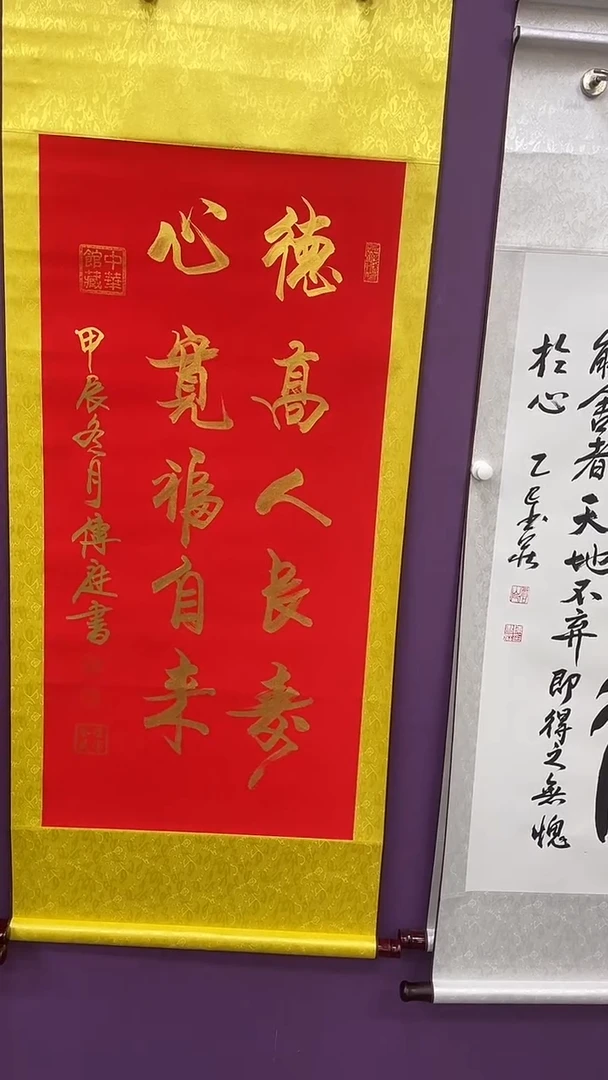 德高人長壽
心寬福自来
甲辰冬月傳庭書
中華
館藏
舍者天地不弃即得之無愧
於心 乙巳